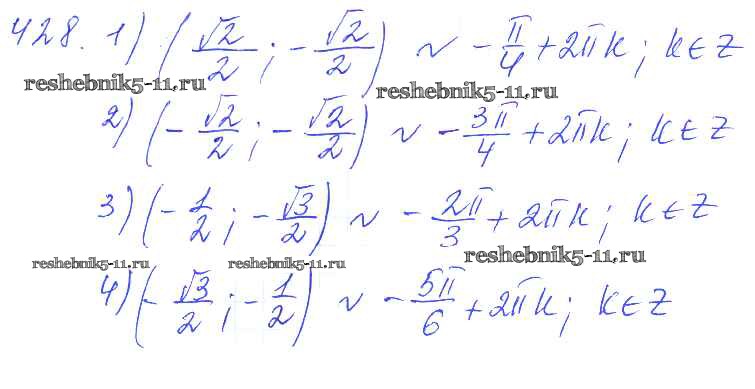 428. 1) (√2/2; -√2/2) ~ -π/4 + 2πk; k∈Z
reshebnik5-11.ru reshebnik5-11.ru
2) (-√2/2; -√2/2) ~ -3π/4 + 2πk; k∈Z
3) (-1/2; -√3/2) ~ -2π/3 + 2πk; k∈Z
reshebnik5-11.ru reshebnik5-11.ru reshebnik5-11.ru
4) (-√3/2; -1/2) ~ -5π/6 + 2πk; k∈Z